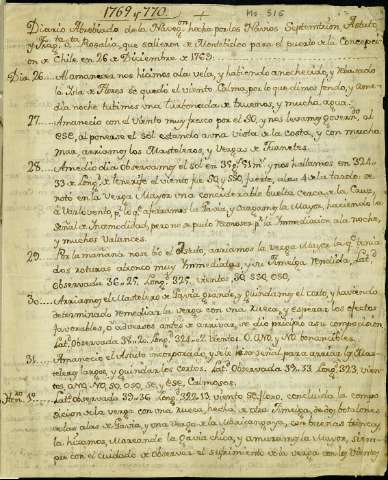 1769 y 770
Ms. 516
Diario Abreblado de la Naveg.on hecha por los Navios Septentrion, Astuto,
y Frag.ta S.ta Rosalia, que salieron de Montebideo para el puerto de la Concepci-
on de Chile en 26 de Diciembre de 1769.
Dia. 26... Al amanecer nos hicimos ala vela, y habiendo anochecido, y rebasado
la Isla de Flores se quedo el viento Calma, por lo que dimos fondo, y ame-
dia noche tubimos una turbonada de truenos, y mucha agua.
27... Amanecio con el viento muy fresco por el SO, y nos levamos governdo. al
ESE, al ponerse el sol estando auna vista de la costa, y con mucha
mar arriamos los Masteleros, y Vergas de Juanetes.
28... Amedio dia observamos el sol en 35g. 51m., y nos hallamos en 324..
33 de Long.d de Tenerife el viento fue SO, y SSO, fuerte, alas 4 dela tarde se
noto en la Verga Mayor una considerable buelta cerca de la Cruz,
à Varlovento p.r lo q.e aferramos la Gavia, y cargamos la Mayor, haciendo la
señal de Incomodidad, pero no se pudo reconocer p.r la Immediacion ala noche,
y muchos Valances.
29... Por la mañana nos el Astuto, arriamos la verga Mayor la q.e tenia
dos roturas alronco muy Immediatas, y su Jimelga rendida, Lat.d
observada 36..27. Long.d 327. vientos, SO, SSO, OSO,
30... Arriamos el Mastelero de Gavia grande, y guindamos el corto, y haviendo
determinado remediar la verga con una Rueca, y esperar los efectos
favorables, ò adversos antes de arrivar, se dio principio asu composicion
Lat.d observada 38..20. Long.d 324..02 vientos O. ONO, y NO bonancibles.
31... Amanecio el Astuto incorporado, y se le hiso señal para arriar los Mas-
teleros largos, y guindar los cortos. Lat.d Observada 39..53 Long.d 323, vien-
tos, ONO, NO, SO, OSO, SE, y ESE, Calmosos,
Hen.ro 1.o... Lat.d observada 39..36 Long.d 322..13 viento SO floxo, concluida la compo
sicion de la verga con una Rueca, hecha de otra Jimelga, de dos botalones
de las alas de Gavia, y una Verga de la Macicangayo, con buenas trincas,
la hizamos, Mareando la Gavia chica, y amuramos la Mayor, siem-
pre con el cuidado de observar el sufrimiento de la verga con los Vientos